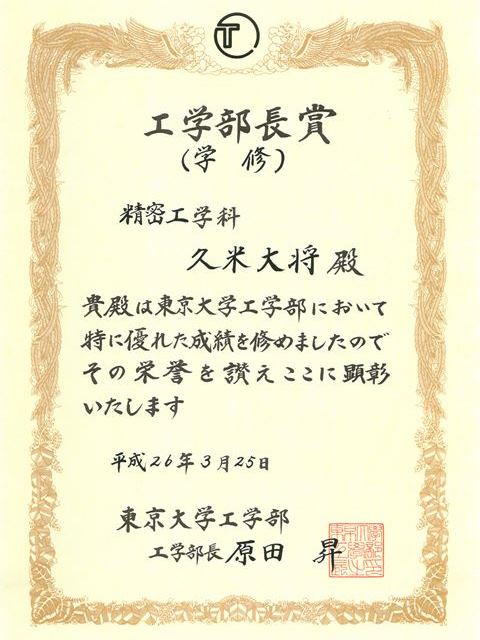 工学部長賞
(学 修)
精密工学科
久米大将 殿
貴殿は東京大学工学部において
特に優れた成績を修めましたので
その栄誉を讃えここに顕彰
いたします
平成26年3月25日
東京大学工学部
工学部長 原田 昇